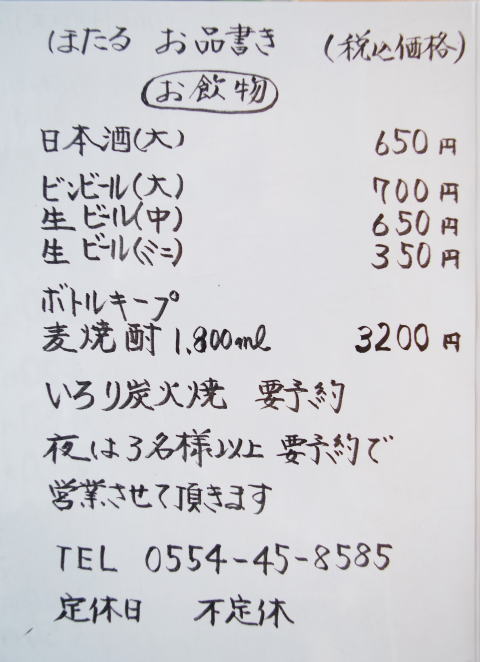 ほたる お品書き (税込価格)
お飲物
日本酒(大) 650円
ビンビール(大) 700円
生ビール(中) 650円
生ビール(ミニ) 350円
ボトルキープ
麦焼酎 1,800ml 3200円
いろり炭火焼 要予約
夜は3名様以上 要予約で
営業させて頂きます
TEL 0554-45-8585
定休日 不定休